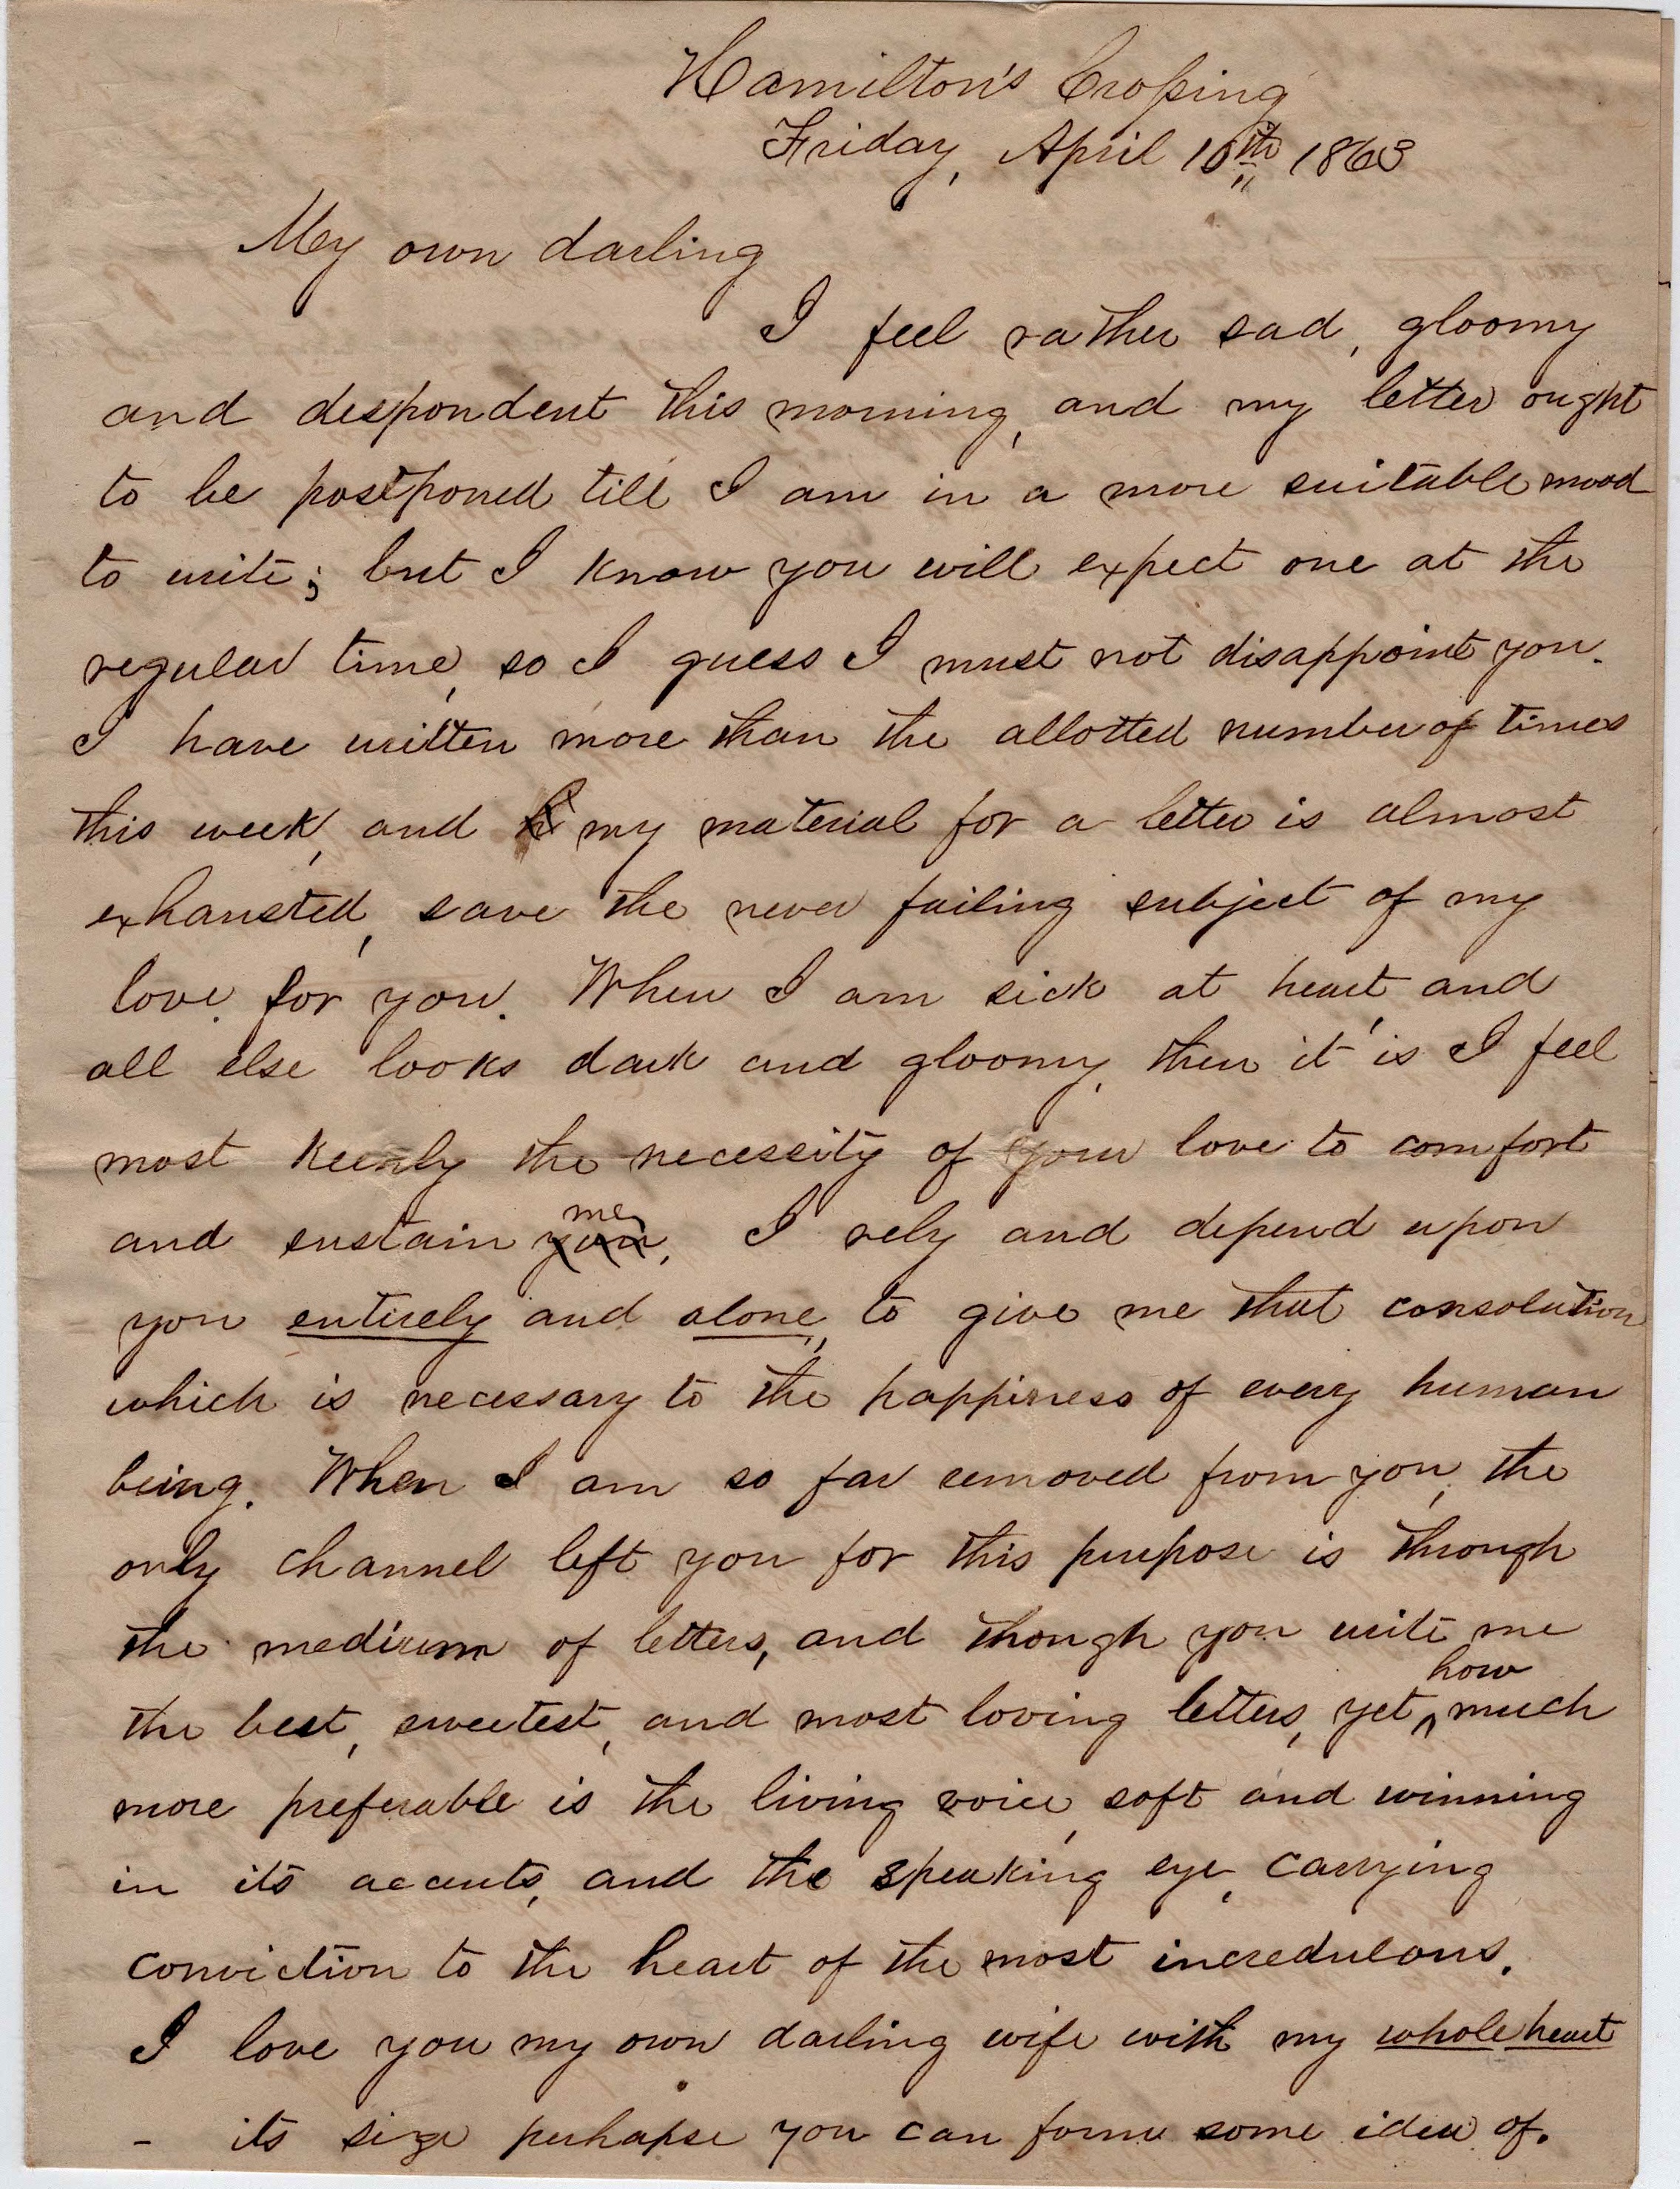 Hamilton's Crossing
Friday, April 10th 1863
My own darling
I feel rather sad, gloomy
and despondent this morning, and my letter ought
to be postponed till I am in a more suitable mood
to write; but I know you will expect one at the
regular time, so I guess I must not disappoint you.
I have written more than the allotted number of times
this week, and my material for a letter is almost
exhausted, save the never failing subject of my
love for you. When I am sick at heart, and
all else looks dark and gloomy, then it is I feel
most keenly the necessity of your love to comfort
and sustain you me. I rely and depend upon
you entirely and alone, to give me that consolation
which is necessary to the happiness of every human
being. When I am so far removed from you, the
only channel left you for this purpose is through
the medium of letters, and though you write me
the best, sweetest, and most loving letters, yet how much
more preferable is the living voice, soft and winning
in its accents, and the speaking eye, carrying
conviction to the heart of the most incredulous.
I love you my own darling wife with my whole heart
- its size perhaps you can form some idea of.